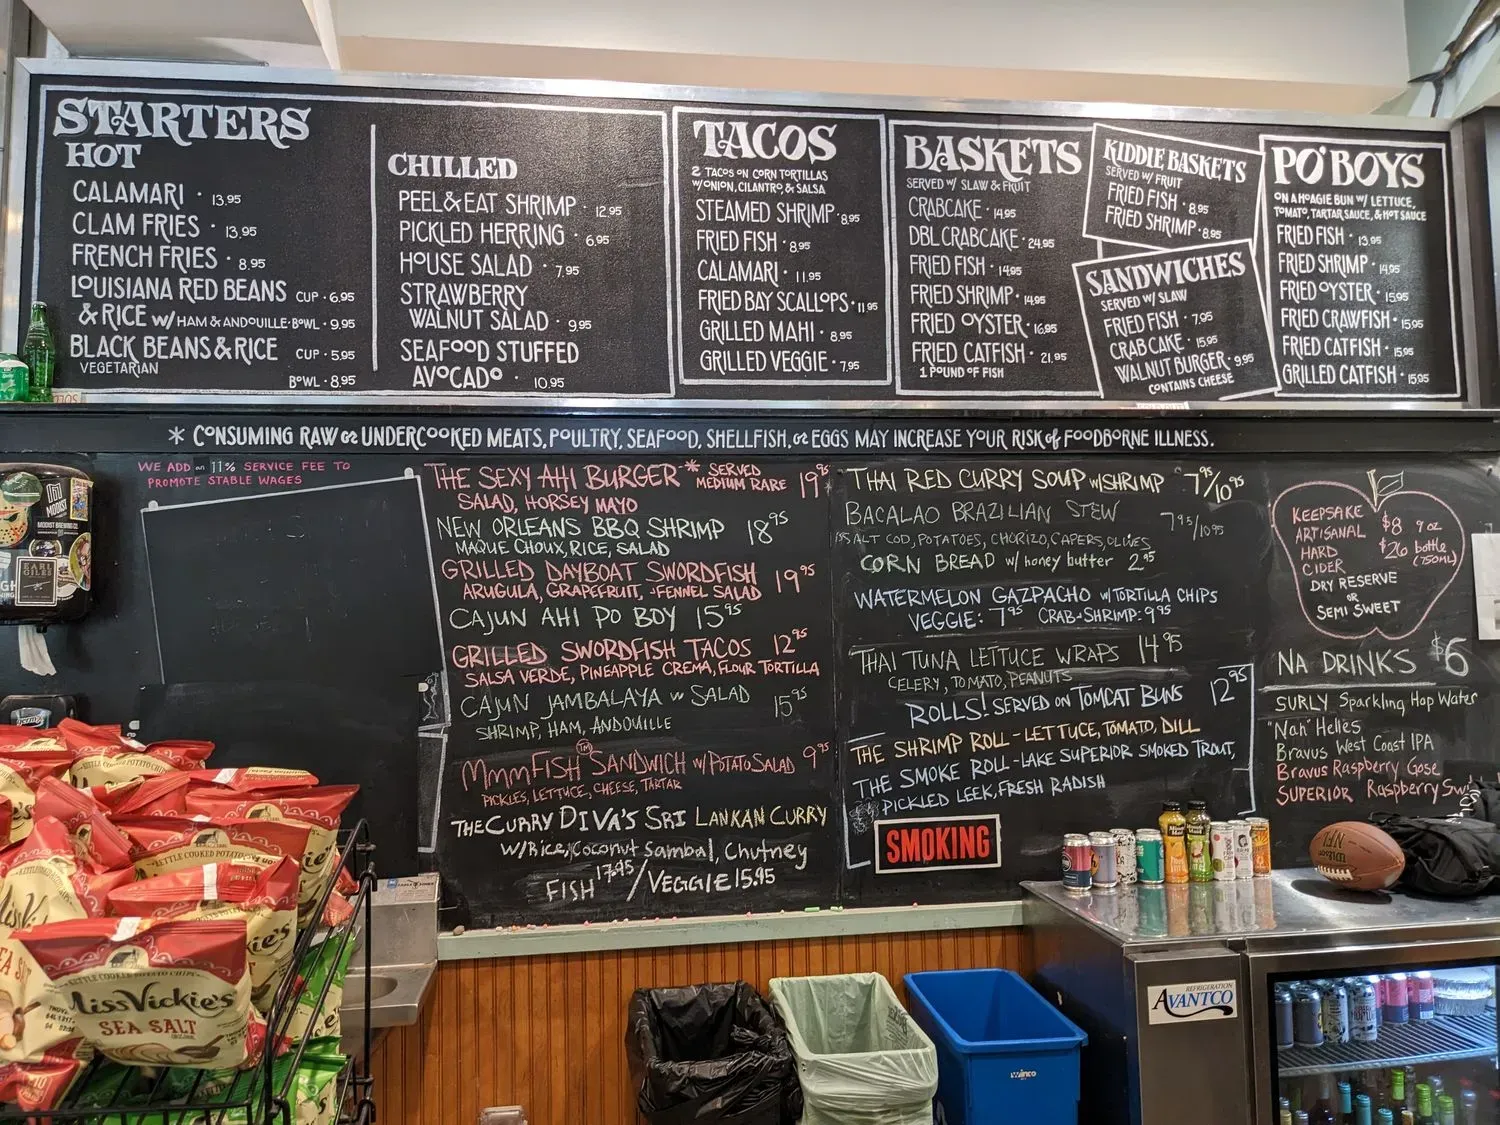 STARTERS
HOT
CALAMARI · 13.95
CLAM FRIES · 13.95
FRENCH FRIES · 8.95
LOUISIANA RED BEANS CUP · 6.95
& RICE w/ HAM & ANDOUILLE · BOWL · 9.95
BLACK BEANS & RICE CUP · 5.95
VEGETARIAN
BOWL · 8.95
CHILLED
PEEL & EAT SHRIMP · 12.95
PICKLED HERRING · 6.95
HOUSE SALAD · 7.95
STRAWBERRY
WALNUT SALAD · 9.95
SEAFOOD STUFFED
AVOCADO · 10.95
TACOS
2 TACOS ON CORN TORTILLAS
W/ONION, CILANTRO, & SALSA
STEAMED SHRIMP · 8.95
FRIED FISH · 8.95
CALAMARI · 11.95
FRIED BAY SCALLOPS · 11.95
GRILLED MAHI · 8.95
GRILLED VEGGIE · 7.95
BASKETS
SERVED W/ SLAW & FRUIT
CRABCAKE · 14.95
DBL CRABCAKE · 24.95
FRIED FISH · 14.95
FRIED SHRIMP · 14.95
FRIED OYSTER · 16.95
FRIED CATFISH · 21.95
1 POUND OF FISH
KIDDIE BASKETS
SERVED W/ FRUIT
FRIED FISH · 8.95
FRIED SHRIMP · 8.95
SANDWICHES
SERVED W/ SLAW
FRIED FISH · 7.95
CRAB CAKE · 15.95
WALNUT BURGER · 9.95
CONTAINS CHEESE
PO'BOYS
ON A HOAGIE BUN W/ LETTUCE,
TOMATO, TARTAR SAUCE, & HOT SAUCE
FRIED FISH · 13.95
FRIED SHRIMP · 14.95
FRIED OYSTER · 15.95
FRIED CRAWFISH · 15.95
FRIED CATFISH · 15.95
GRILLED CATFISH · 15.95
* CONSUMING RAW or UNDERCOOKED MEATS, POULTRY, SEAFOOD, SHELLFISH, or EGGS MAY INCREASE YOUR RISK of FOODBORNE ILLNESS.
WE ADD an 11% SERVICE FEE TO
PROMOTE STABLE WAGES
THE SEXY AHI BURGER * SERVED MEDIUM RARE 19.95
SALAD, HORSEY MAYO
NEW ORLEANS BBQ SHRIMP 18.95
MAQUE CHOUX, RICE, SALAD
GRILLED DAYBOAT SWORDFISH 19.95
ARUGULA, GRAPEFRUIT, + FENNEL SALAD
CAJUN AHI PO BOY 15.95
GRILLED SWORDFISH TACOS 12.95
SALSA VERDE, PINEAPPLE CREMA, FLOUR TORTILLA
CAJUN JAMBALAYA w SALAD 15.95
SHRIMP, HAM, ANDOUILLE
MmmFISH™ SANDWICH W/ POTATO SALAD 9.95
PICKLES, LETTUCE, CHEESE, TARTAR
THE CURRY DIVA'S SRI LANKAN CURRY
W/Rice, Coconut Sambal, Chutney
FISH 17.95 / VEGGIE 15.95
THAI RED CURRY SOUP w/SHRIMP 7.95/10.95
BACALAO BRAZILIAN STEW 7.95/10.95
SALT COD, POTATOES, CHORIZO, CAPERS, OLIVES
CORN BREAD w/ honey butter 2.95
WATERMELON GAZPACHO w/TORTILLA CHIPS
VEGGIE: 7.95 CRAB+SHRIMP: 9.95
THAI TUNA LETTUCE WRAPS 14.95
CELERY, TOMATO, PEANUTS
ROLLS! SERVED ON TOMCAT BUNS 12.95
THE SHRIMP ROLL - LETTUCE, TOMATO, DILL
THE SMOKE ROLL - LAKE SUPERIOR SMOKED TROUT,
PICKLED LEEK, FRESH RADISH
SMOKING
KEEPSAKE
ARTISANAL $8 9 oz
HARD $26 bottle
CIDER (750ML)
DRY RESERVE
OR
SEMI SWEET
NA DRINKS $6
SURLY Sparkling Hop Water
"Nah" Helles
Bravus West Coast IPA
Bravus Raspberry Gose
SUPERIOR Raspberry
MODIST
MODIST BREWING CO.
EARL GILES
KETTLE COOKED POTATO CHIPS
MissVickie's
SEA SALT
REFRIGERATION
AVANTCO
winco
Wilson
NFL